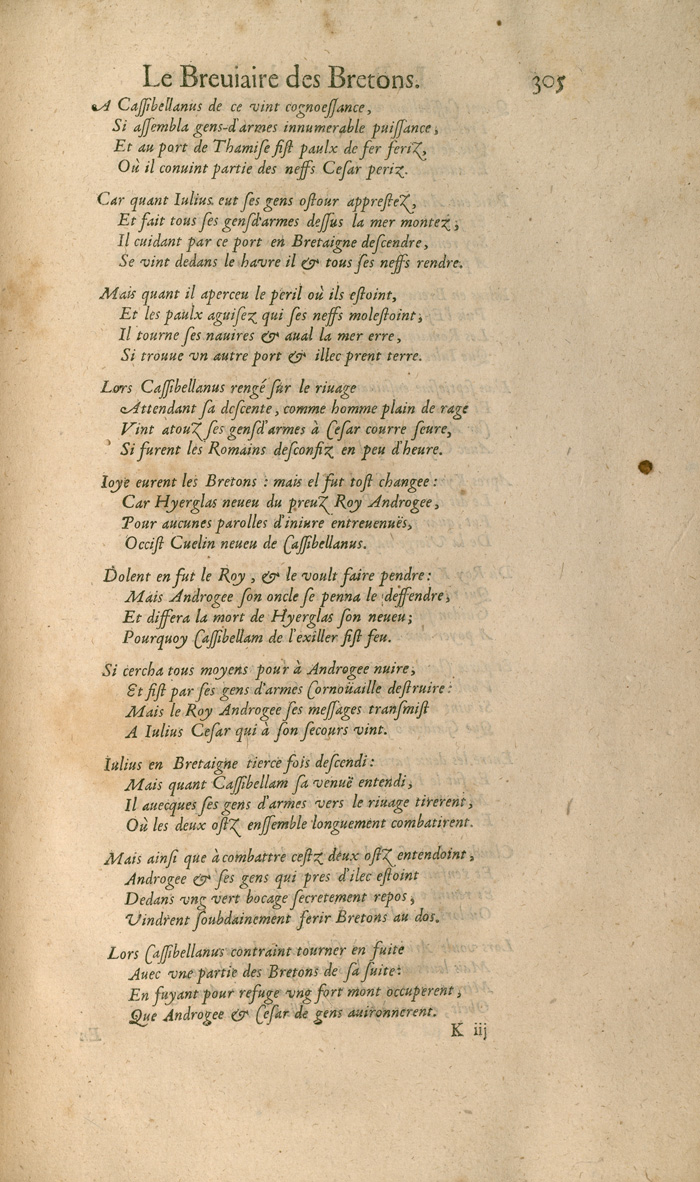 Le Breuiaire des Bretons. 305
A Caſſibellanus de ce vint cognoeſſance,
Si aſſembla gens-d'armes innumerable puiſſance,
Et au port de Thamiſe fiſt paulx de fer feriz,
Où il conuint partie des neffs Ceſar periz.
Car quant Iulius eut ſes gens oſtour appreſtez,
Et fait tous ſes genſd'armes deſſus la mer montez,
Il cuidant par ce port en Bretaigne deſcendre,
Se vint dedans le havre il & tous ſes neffs rendre.
Mais quant il aperceu le peril où ils eſtoint,
Et les paulx aguiſez qui ſes neffs moleſtoint,
Il tourne ſes nauires & aual la mer erre,
Si trouue vn autre port & illec prent terre.
Lors Caſſibellanus rengé ſur le riuage
Attendant ſa deſcente, comme homme plain de rage
Vint atouz ſes genſd'armes à Ceſar courre ſeure,
Si furent les Romains deſconfiz en peu d'heure.
Ioye eurent les Bretons : mais el fut toſt changee :
Car Hyerglas neueu du preuz Roy Androgee,
Pour aucunes parolles d'iniure entreuenuës,
Occiſt Cuelin neueu de Caſſibellanus.
Dolent en fut le Roy, & le voult faire pendre :
Mais Androgee ſon oncle ſe penna le deffendre,
Et differa la mort de Hyerglas ſon neueu;
Pourquoy Caſſibellam de l'exiller fiſt feu.
Si cercha tous moyens pour à Androgee nuire,
Et fiſt par ſes gens d'armes Cornoüaille deſtruire :
Mais le Roy Androgee ſes meſſages tranſmiſt
A Iulius Ceſar qui à ſon ſecours vint.
Iulius en Bretaigne tierce fois deſcendi :
Mais quant Caſſibellam ſa venuë entendi,
Il auecques ſes gens d'armes vers le riuage tirerent,
Où les deux oſtz enſſemble longuement combatirent.
Mais ainſi que à combattre ceſtz deux oſtz entendoint,
Androgee & ſes gens qui pres d'ilec eſtoint
Dedans vng vert bocage ſecretement repos,
Vindrent ſoubdainement ferir Bretons au dos.
Lors Caſſibellanus contraint tourner en fuite
Auec vne partie des Bretons de ſa ſuite :
En fuyant pour refuge vng fort mont occuperent,
Que Androgee & Ceſar de gens auironnerent.
K iij